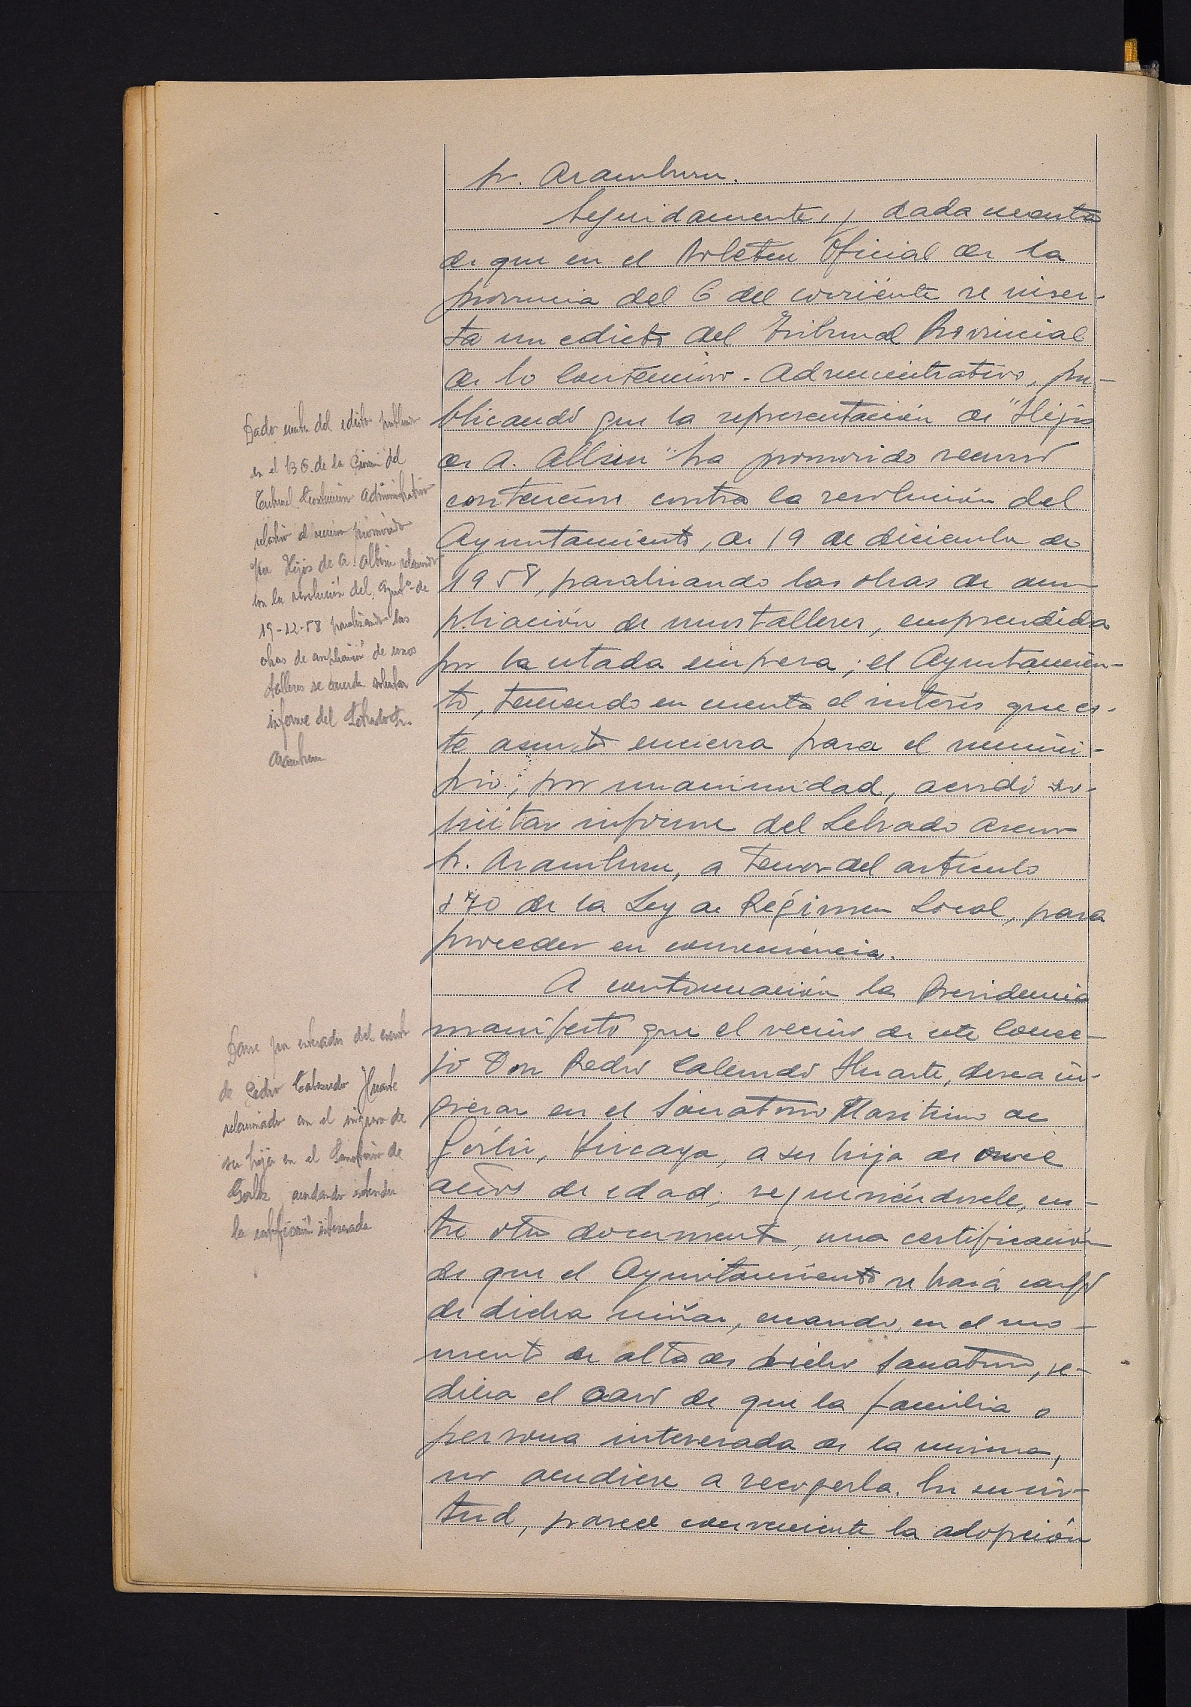 Sr. Aramburu.
Seguidamente, y dada cuenta
de que en el Boletín Oficial de la
provincia del 6 del corriente se inser-
ta un edicto del Tribunal Provincial
de lo Contencioso-Administrativo, pu-
blicando que la representación de "Hijos
de A. Albizu" ha promovido recurso
contencioso contra la resolución del
Ayuntamiento, de 19 de diciembre de
1958, paralizando las obras de am-
pliación de unos talleres, emprendida
por la citada empresa; el Ayuntamien-
to, teniendo en cuenta el interés que es-
te asunto encierra para el munici-
pio; por unanimidad, acordó so-
licitar informe del Letrado asesor
Sr. Aramburu, a tenor del artículo
370 de la Ley de Régimen Local, para
proceder en consecuencia.
A continuación la Presidencia
manifestó que el vecino de este Conce-
jo Don Pedro Calzado Huarte, desea in-
gresar en el Sanatorio Marítimo de
Górliz, Vizcaya, a su hija de once
años de edad; requiriéndosele, en-
tre otros documentos, una certificación
de que el Ayuntamiento se hará cargo
de dicha niña, cuando, en el mo-
mento de alta de dicho Sanatorio, se
diera el caso de que la familia o
persona interesada de la misma,
no acudiere a recogerla. En su vir-
tud, parece conveniente la adopción
Dado cuenta del edicto publicado
en el B.O. de la Provin. del
Tribunal Contencioso Administrativo
relativo al recurso promovido
por Hijos de A. Albizu relacionado
con la resolución del Ayuntº de
19-12-58 paralizando las
obras de ampliación de unos
talleres se acuerda solicitar
informe del Letrado Sr.
Aramburu
Darse por enterados del escrito
de Pedro Huarte
relacionado con el ingreso de
su hija en el Sanatorio de
Górliz acordando extender
la certificación interesada